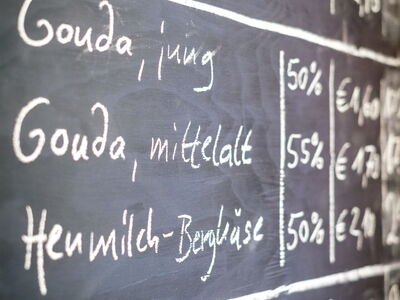 Gouda, jung 50% €1,60
Gouda, mittelalt 55% €1,70
Heumilch-Bergkäse 50% €2,10